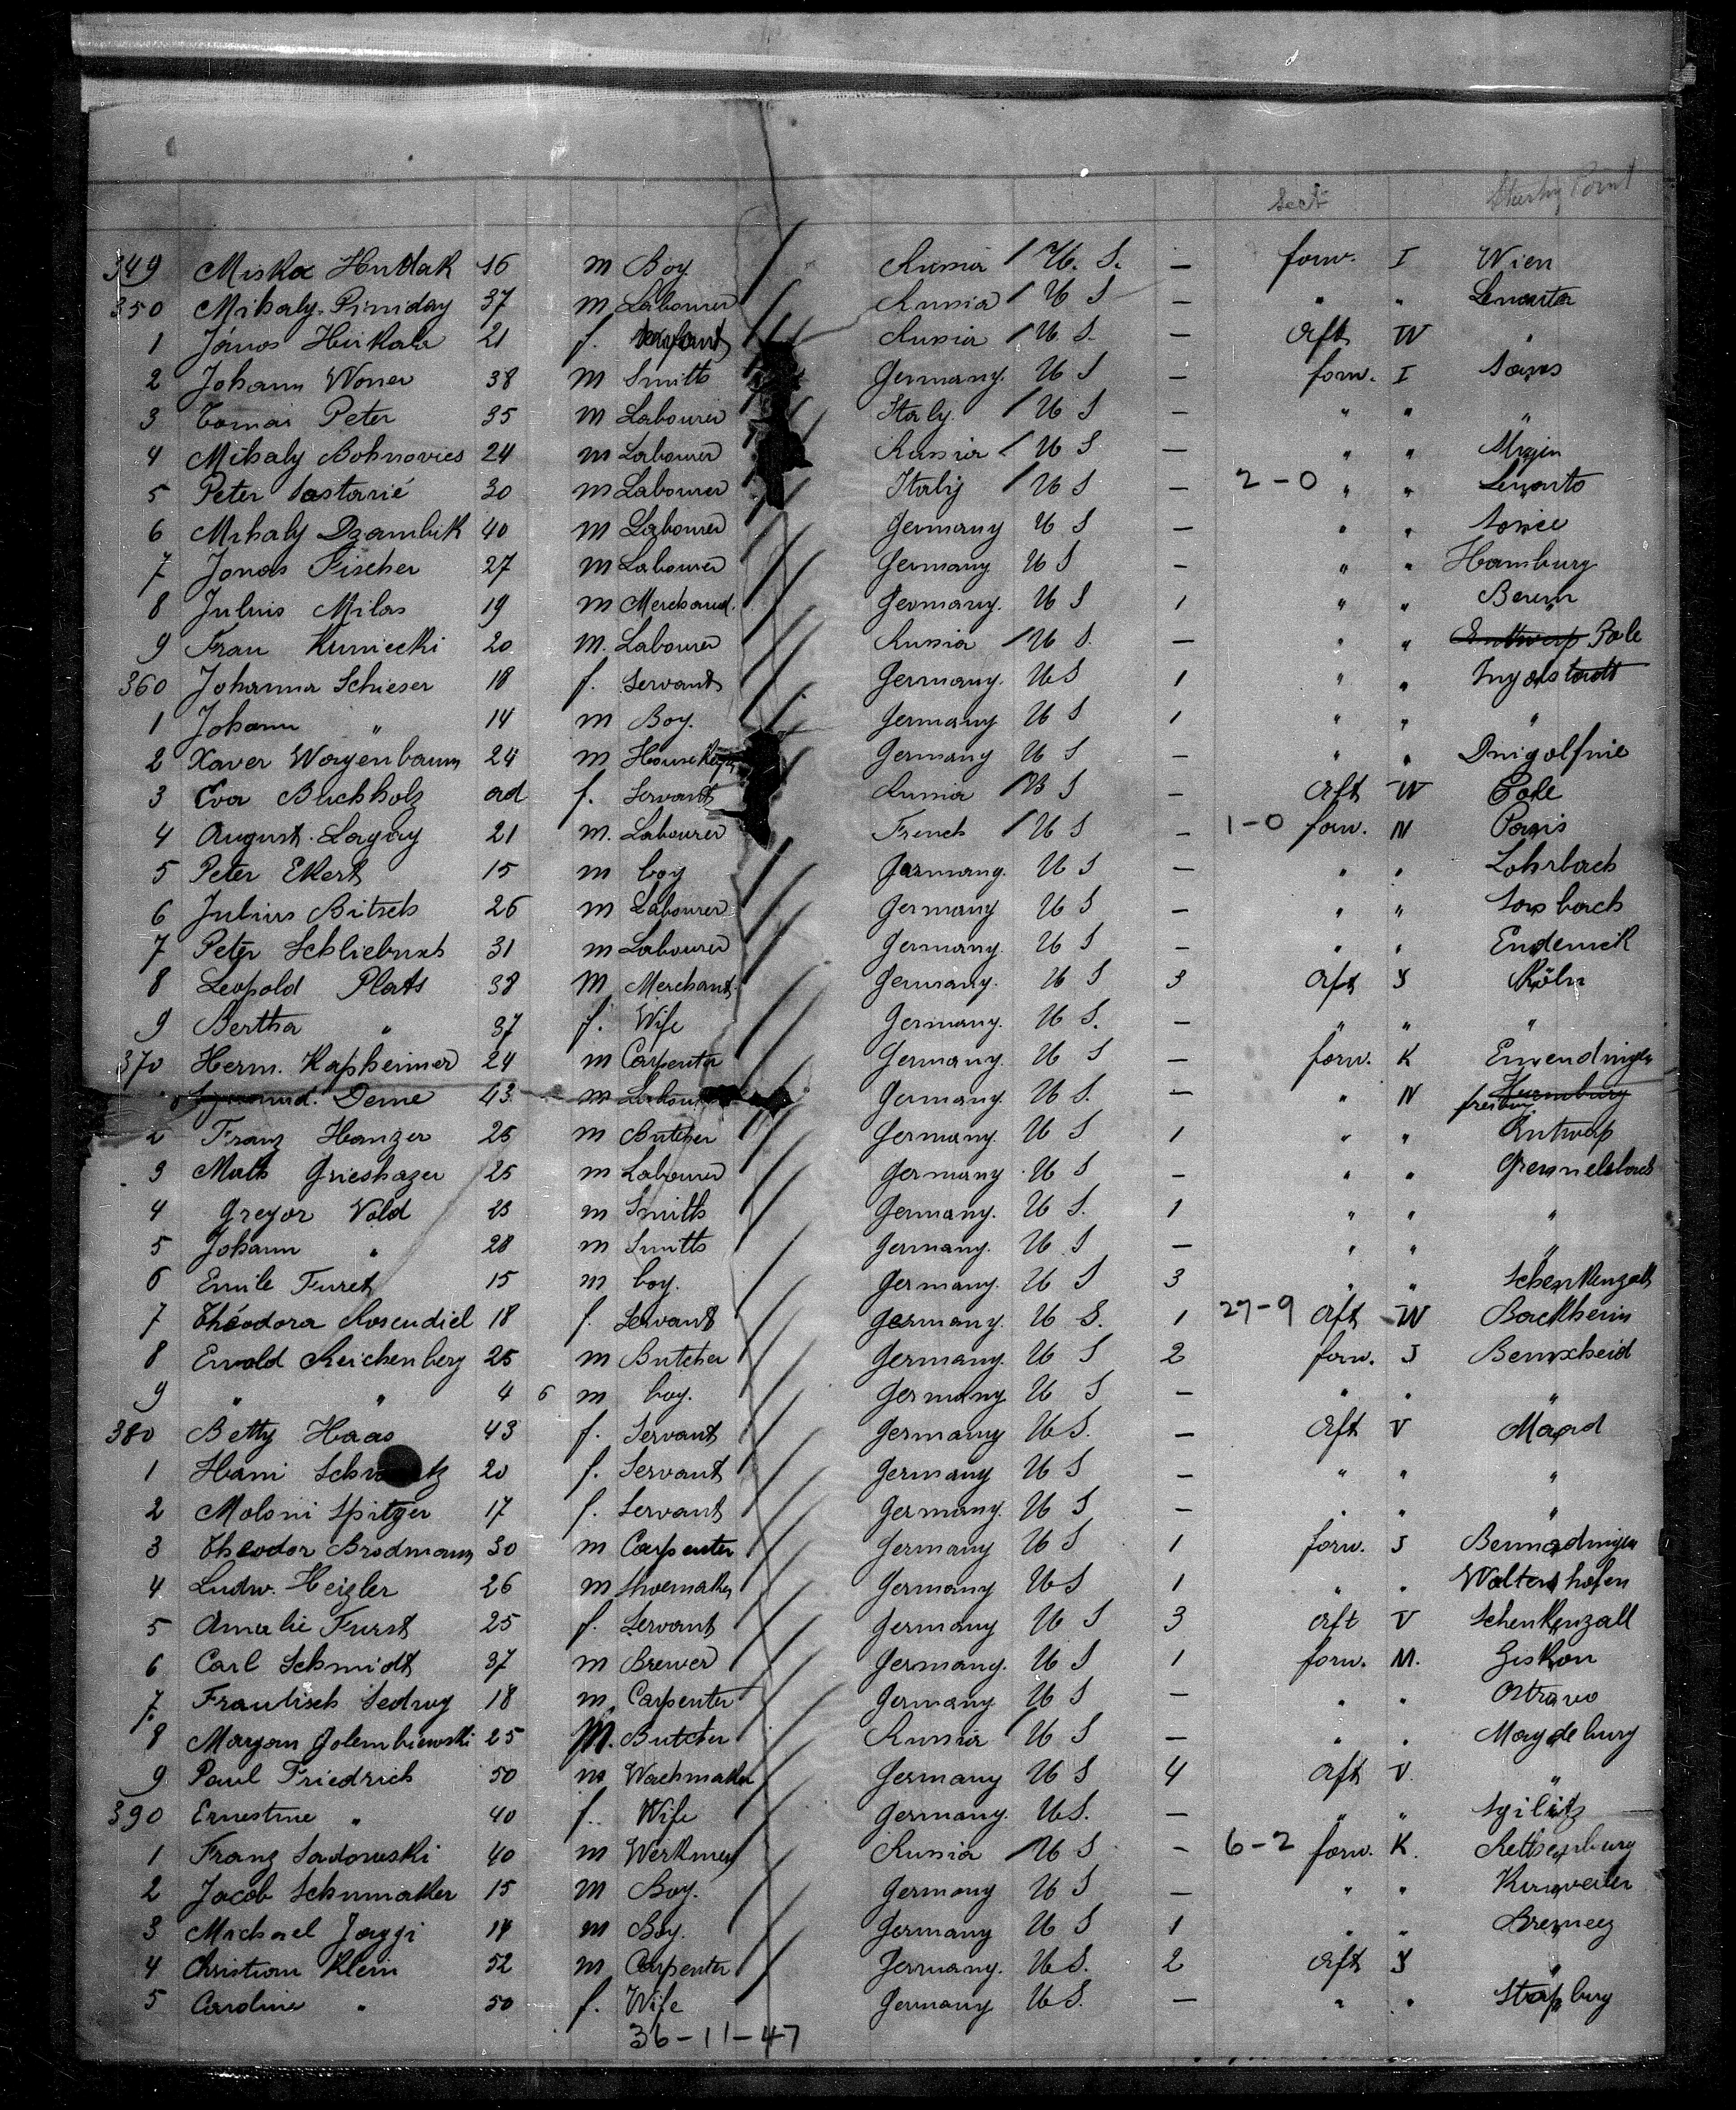 Sect Starting Point
349 Miska Hudak 16 m Boy Russia U. S. — forw. I Wien
350 Mihaly 37 m Labourer Russia U S — " " Lenarta
1 János Huikala 21 f. Russia U. S. — Aft W "
2 Johann Woner 38 m Smith Germany. U S — forw. I
3 Tomas Peter 35 m Labourer Italy U S — " " "
4 Mihaly Bohnovics 24 m Labourer Russia U S — " "
5 Peter Sastarié 30 m Labourer Italy U S — 2-0 " " Lenarto
6 Mihaly Dzambik 40 m Labourer Germany U S — " "
7 Jonas Fischer 27 m Labourer Germany U S — " " Hamburg
8 Julius Milas 19 m Merchand. Germany. U S 1 " "
9 Frau Kuniecki 20 m. Labourer Russia U S. — " " Antwerp Bale
360 Johanna Schieser 18 f. Servant Germany. U S 1 " " Ingolstadt
1 Johann " 14 m Boy. Germany U S 1 " " "
2 Xaver Wagenbaum 24 m Germany U S — " "
3 Eva Buchholz ad f. Servant Russia U S — Aft W
4 August 21 m. Labourer French U S — 1-0 forw. N Paris
5 Peter Ekert 15 m boy Germany. U S — " " Lohrbach
6 Julius Bitsch 26 m Labourer Germany U S — " "
7 Peter 31 m Labourer Germany. U S — " " Endenick
8 Leopold Plats 38 m Merchant. Germany. U S 3 Aft Köln
9 Bertha " 37 f. Wife Germany. U S. — " " "
370 Herm. Kapheimer 24 m Carpenter Germany. U S — forw. K Emendingen
Deme 43 m Germany. U S. — " N Hamburg freiburg
2 Franz Hanzer 25 m Butcher Germany. U S 1 " " Antwerp
3 Math Grieshazer 25 m Labourer Germany U S — " "
4 Gregor Vold 23 m Smith Germany. U S. 1 " " "
5 Johann " 28 m Smith Germany. U S — " " "
6 Emile Furet 15 m boy. Germany. U S 3 " " Schenkenzall
7 Théodora Rosendiel 18 f. Servant Germany. U S. 1 27-9 Aft W Backheim
8 Ewald Reichenberg 25 m Butcher Germany. U S 2 forw. J Bemscheid
9 " " 4 6 m boy. Germany U S — " " "
380 Betty Haas 43 f. Servant Germany U S. — Aft V Maad
1 Hani 20 f. Servant Germany U S — " " "
2 Moloni Spitzer 17 f. Servant Germany. U S — " " "
3 Theodor Brodmann 30 m Carpenter Germany U S 1 forw. J Bermadingen
4 Ludw. Heizler 26 m Shoemaker Germany U S 1 " " Waltershofen
5 Amalie Furst 25 f. Servant Germany U S 3 Aft V Schenkenzall
6 Carl Schmidt 37 m Brewer Germany. U S 1 forw. M. Ziskon
7 Frantisek Sedivy 18 m Carpenter Germany U S — " " Ostravo
8 Maryan Golembiewski 25 M. Butcher Russia U S — " " Magdeburg
9 Paul Friedrich 50 m Wachmaker Germany U S 4 Aft V. "
390 Ernestine " 40 f. Wife Germany. U S. — " "
1 Franz Sadowski 40 m Werkmen Russia U S — 6-2 forw. K.
2 Jacob Schumaker 15 m Boy. Germany U S — " " Kirrweiler
3 Michael Jaggi 14 m Boy. Germany U S 1 " "
4 Christian Klein 52 m Carpenter Germany. U S. 2 Aft "
5 Caroline " 50 f. Wife Germany U S. — " " Straßburg
36-11-47